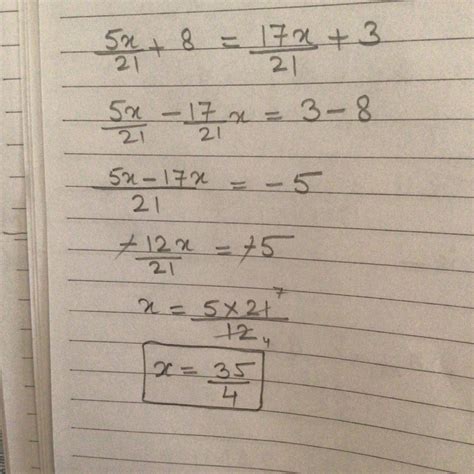 5x/21 + 8 = 17x/21 + 3
5x/21 - 17/21 x = 3 - 8
5x - 17x/21 = - 5
-12x/21 = -5
x = 5 × 21 7/12 4
x = 35/4